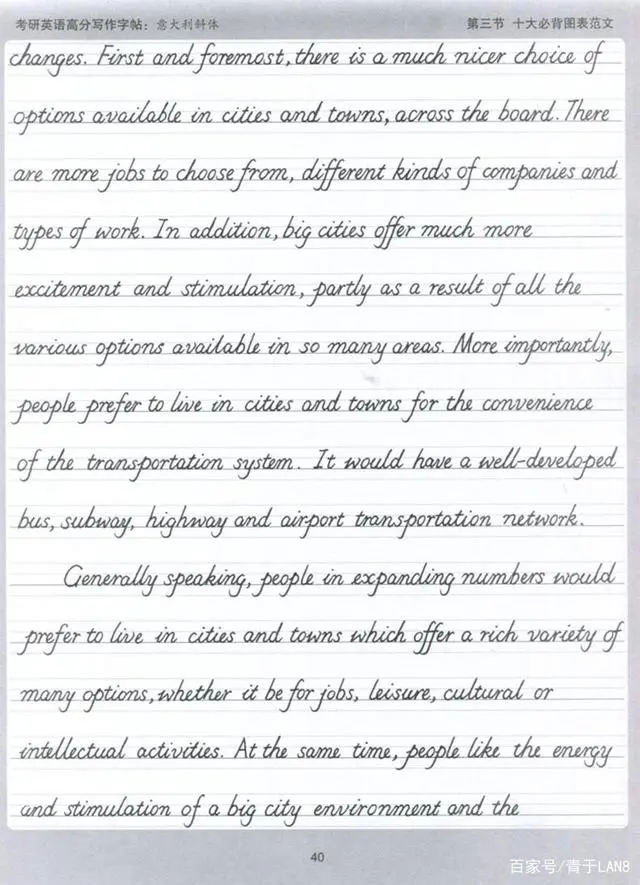 考研英语高分写作字帖：意大利斜体
第三节 十大必背图表范文
changes. First and foremost, there is a much nicer choice of
options available in cities and towns, across the board. There
are more jobs to choose from, different kinds of companies and
types of work. In addition, big cities offer much more
excitement and stimulation, partly as a result of all the
various options available in so many areas. More importantly,
people prefer to live in cities and towns for the convenience
of the transportation system. It would have a well-developed
bus, subway, highway and airport transportation network.
Generally speaking, people in expanding numbers would
prefer to live in cities and towns which offer a rich variety of
many options, whether it be for jobs, leisure, cultural or
intellectual activities. At the same time, people like the energy
and stimulation of a big city environment and the
40
百家号/青于LAN8